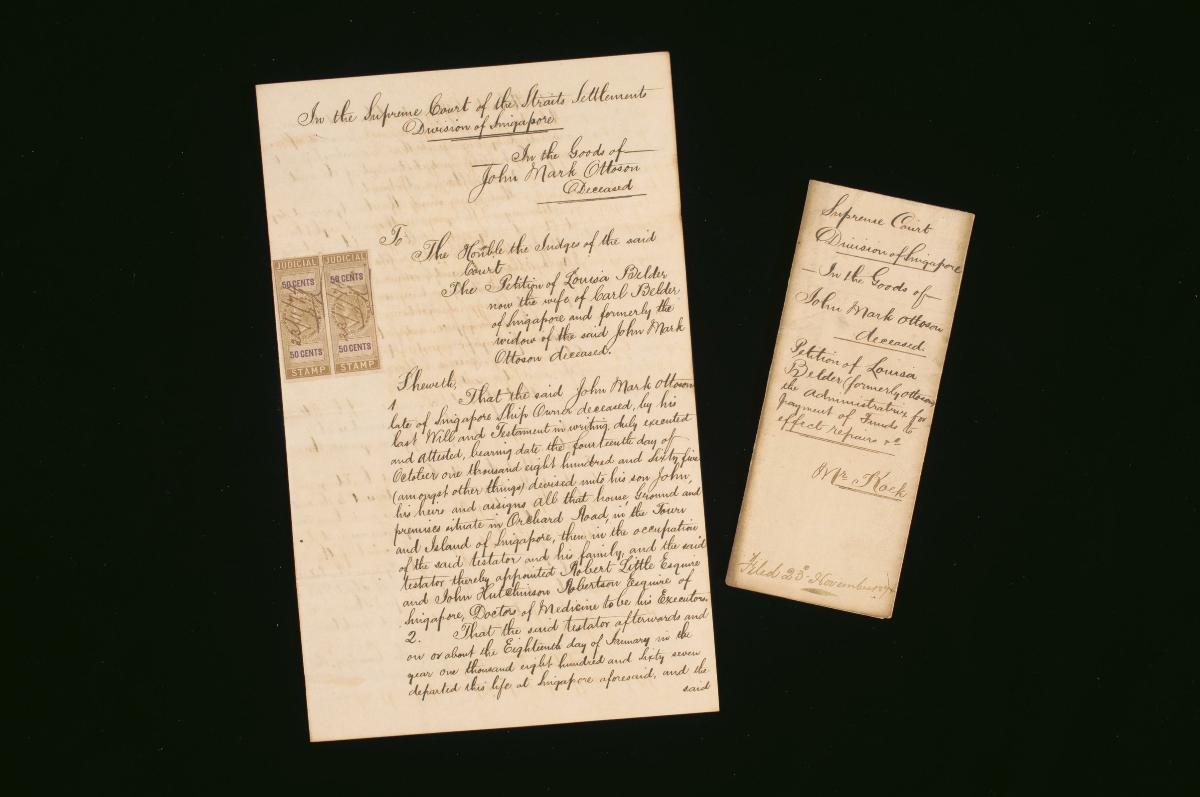 In the Supreme Court of the Straits Settlements
Division of Singapore
In the Goods of
John Mark Ottoson
Deceased
To
The Honble the Judges of the said
Court
The Petition of Louisa Belder
now the wife of Carl Belder
of Singapore and formerly the
widow of the said John Mark
Ottoson deceased.
JUDICIAL JUDICIAL
50 CENTS 50 CENTS
50 CENTS 50 CENTS
STAMP STAMP
Sheweth,
1 That the said John Mark Ottoson
late of Singapore Ship Owner deceased, by his
last Will and Testament in writing duly executed
and attested, bearing date the fourteenth day of
October one thousand eight hundred and sixty five
(amongst other things) devised unto his son John,
his heirs and assigns all that house, ground and
premises situate in Orchard Road, in the Town
and Island of Singapore, then in the occupation
of the said testator and his family, and the said
testator thereby appointed Robert Little Esquire
and John Hutchinson Robertson Esquire of
Singapore, Doctors of Medicine to be his Executors.
2. That the said testator afterwards and
on or about the Eighteenth day of January in the
year one thousand eight hundred and sixty seven
departed this life at Singapore aforesaid, and the
said
Supreme Court
Division of Singapore
In the Goods of
John Mark Ottoson
deceased.
Petition of Louisa
Belder (formerly Ottoson)
the Administratrix for
payment of Funds to
effect repairs &c
Mr
Filed 23d November